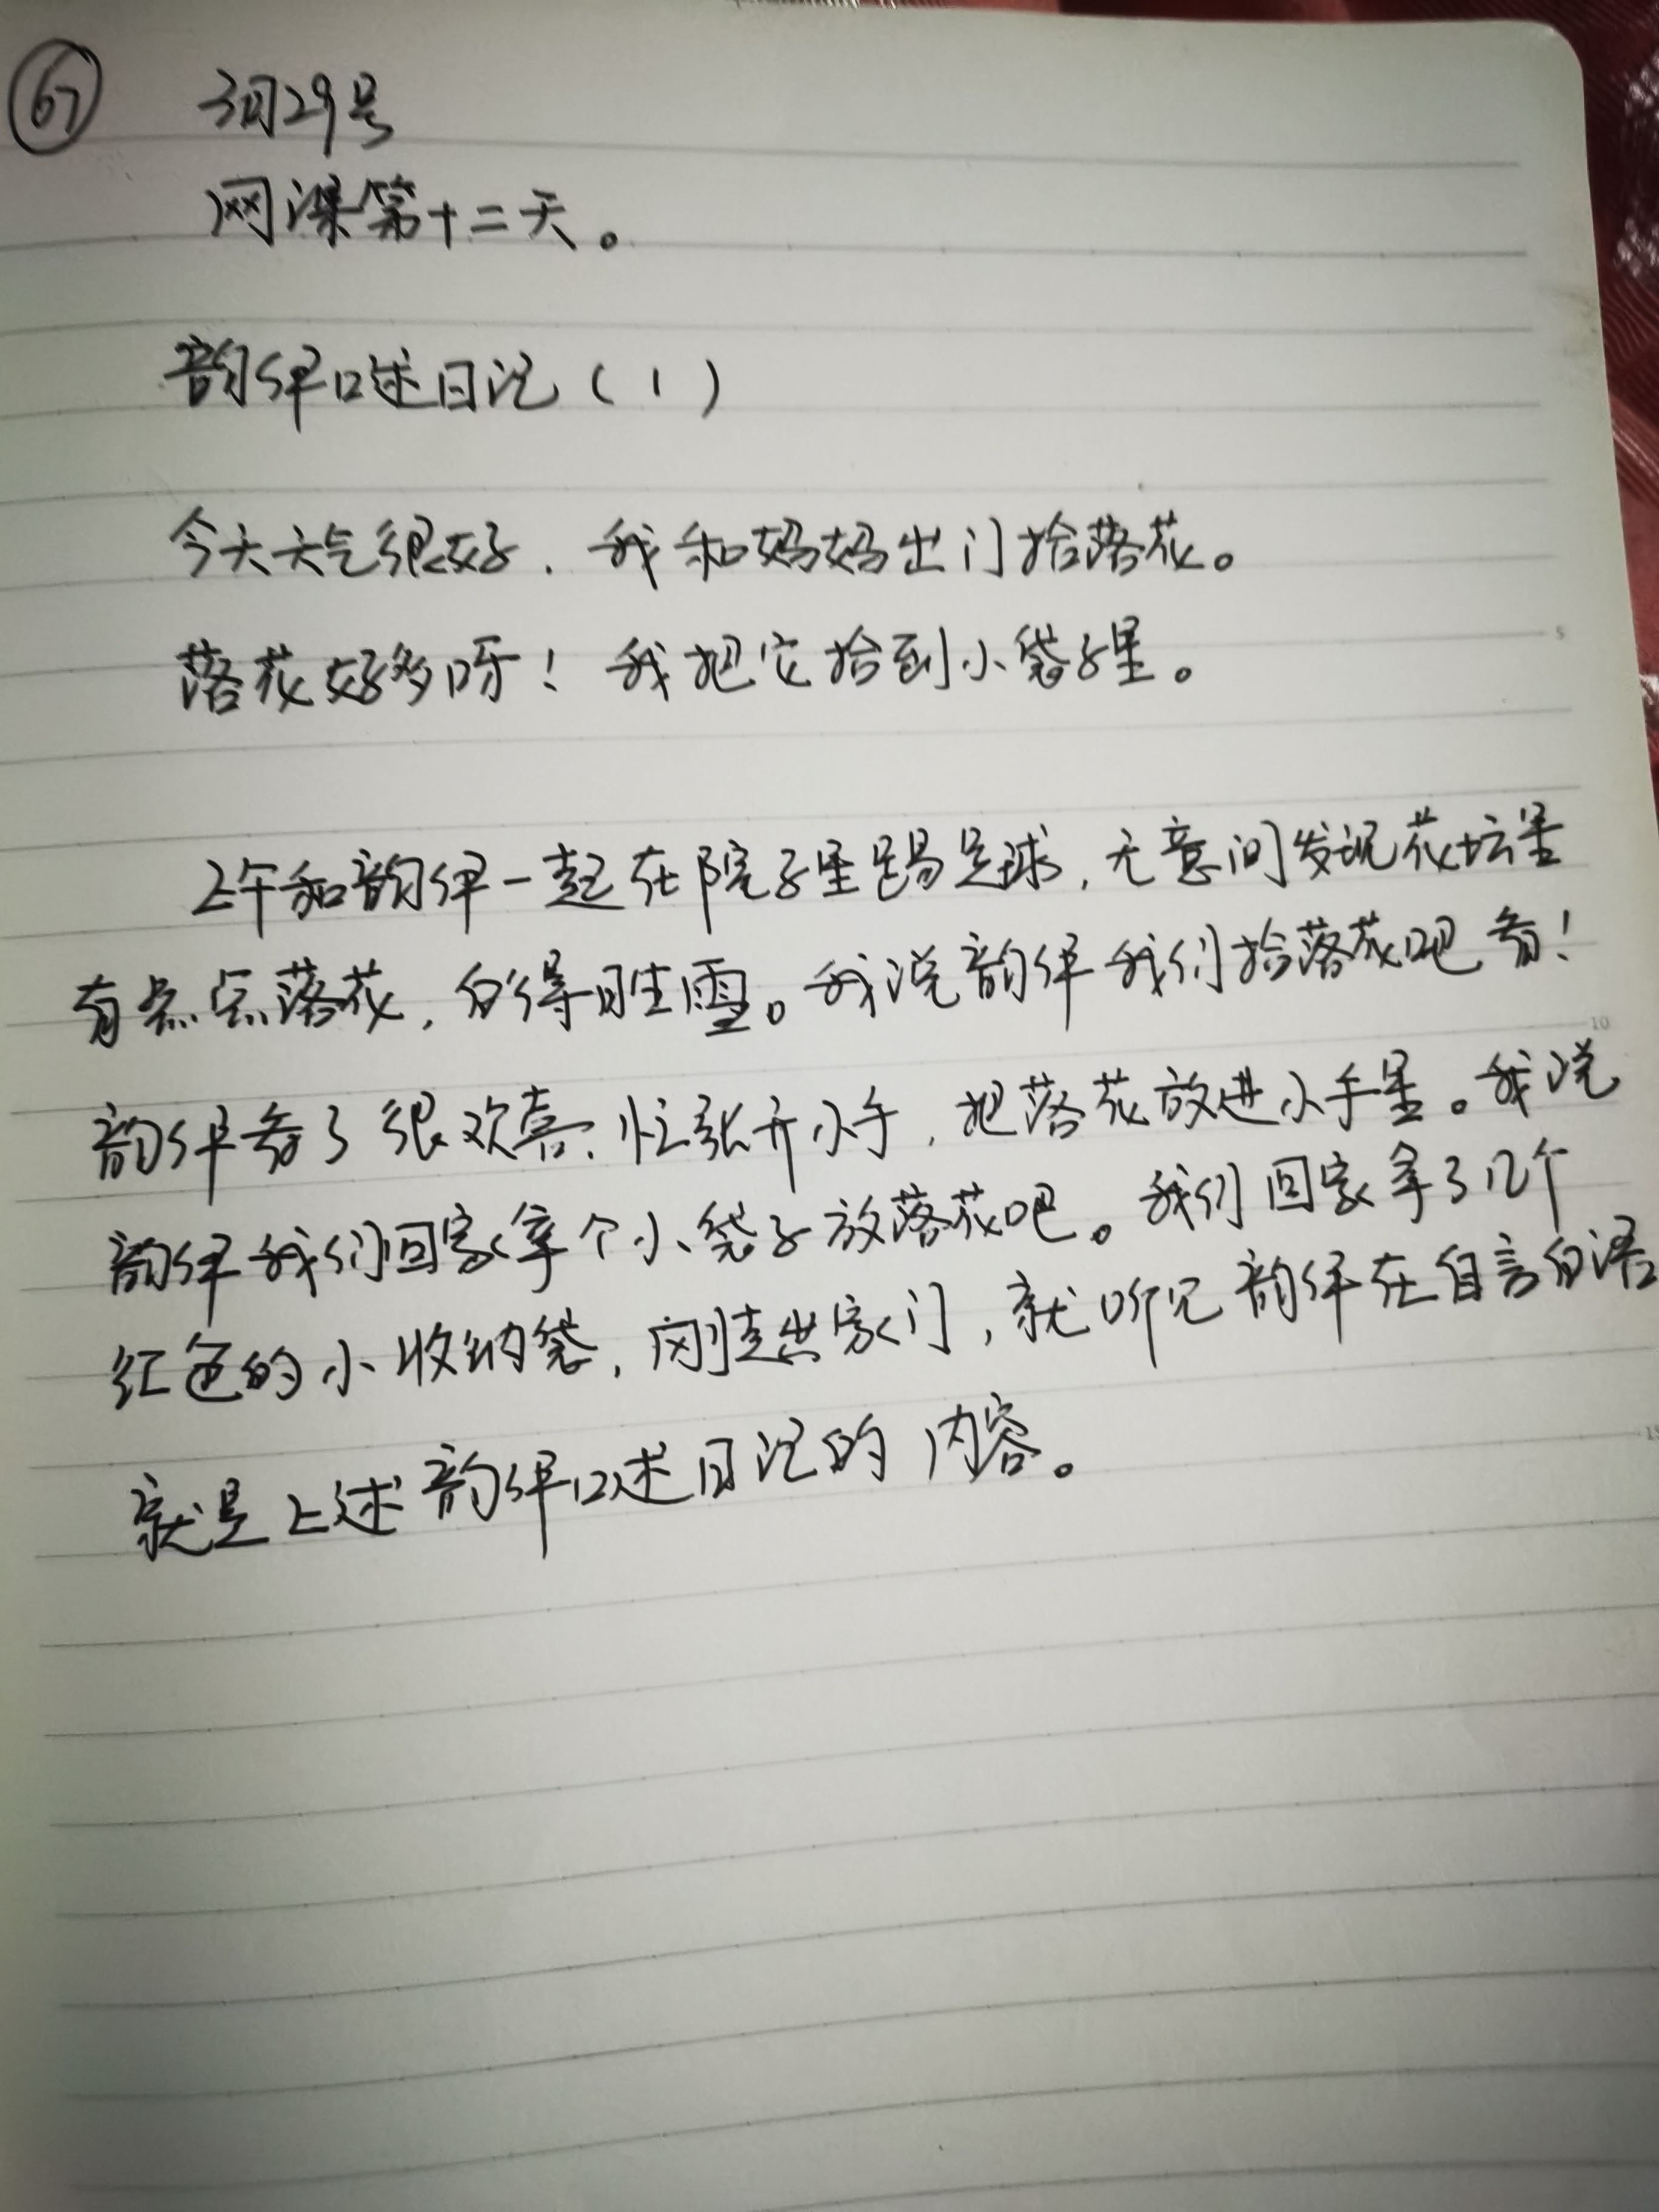 67
3月29号
网课第十二天。
韵伊口述日记(1)
今天天气很好,我和妈妈出门拾落花。
落花好多呀!我把它拾到小袋子里。
5
上午和韵伊一起在院子里踢足球,无意间发现花坛里
有点点落花,白得胜雪。我说韵伊我们拾落花吧
10
韵伊 了很欢喜,忙张开小手,把落花放进小手里。我说
韵伊我们回家拿个小袋子放落花吧。我们回家拿了几个
红色的小收纳袋,刚走出家门,就听见韵伊在自言自语
15
就是上述韵伊口述日记的内容。